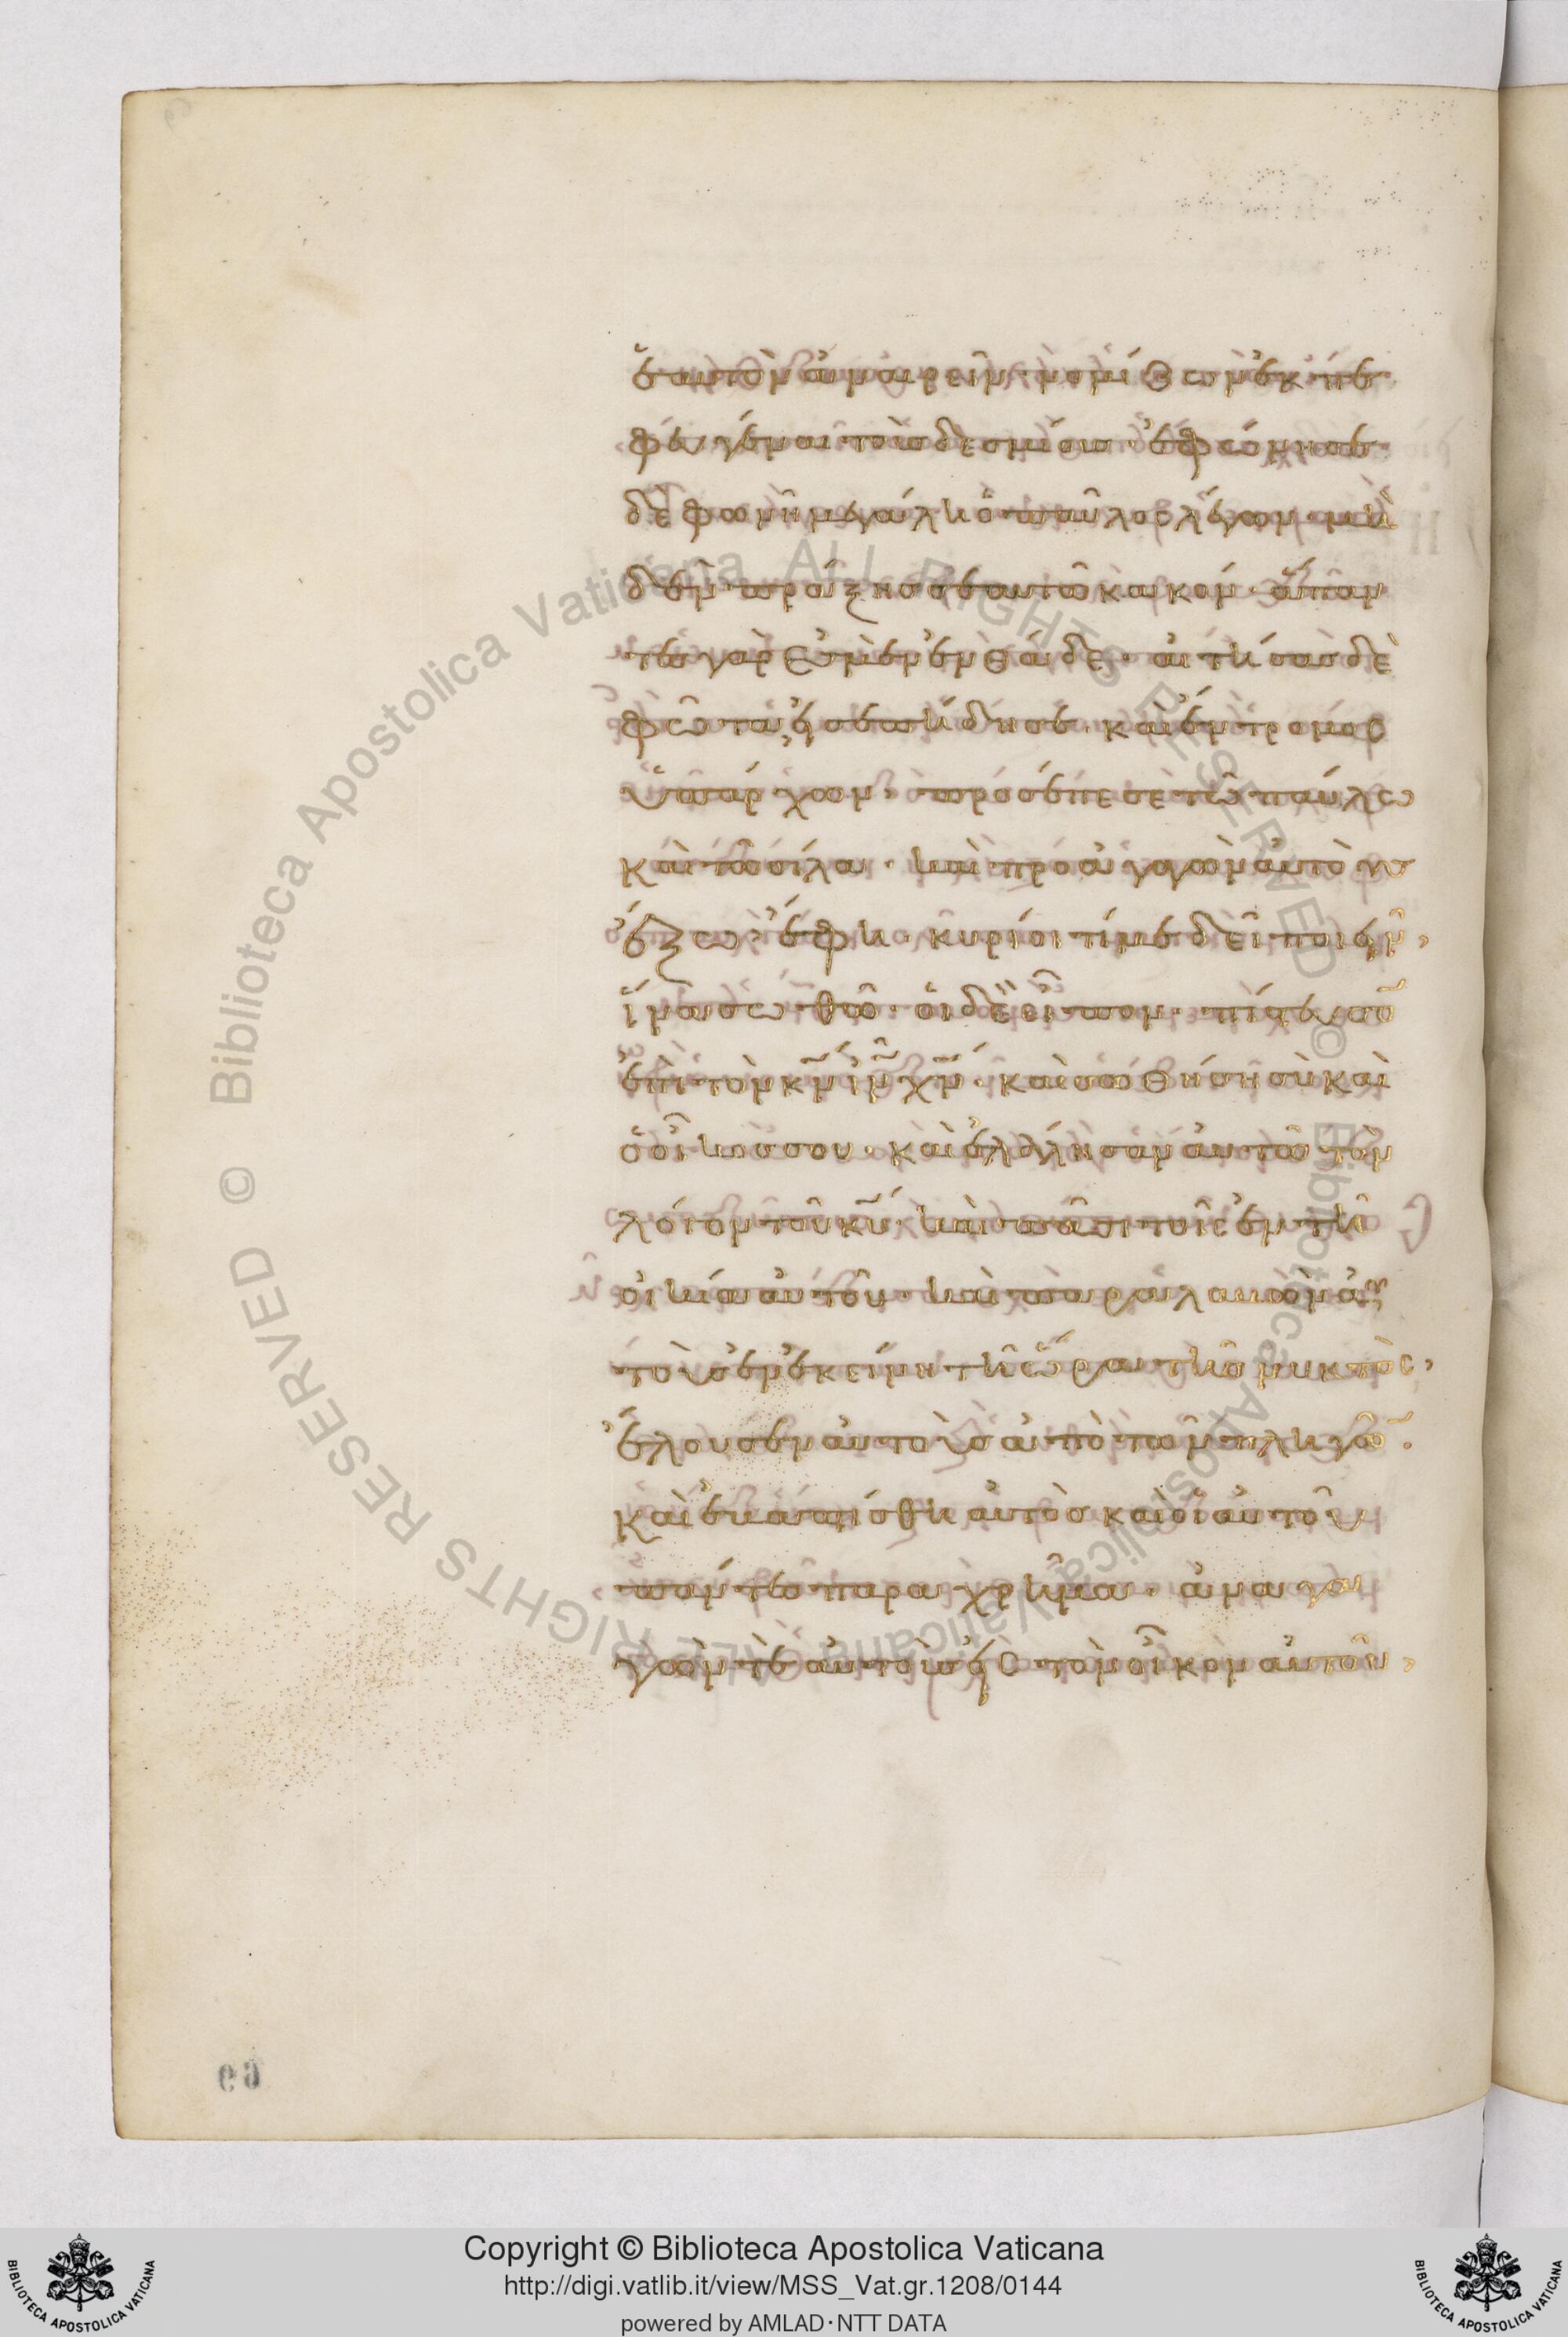 ἑαυτὸν ἀναιρεῖν· νομίζων ἐκπε
φευγέναι τοὺς δεσμίους· ἐφώνησε
δὲ φωνῇ μεγάλῃ ὁ παῦλος λέγων· μη
δὲν πράξῃς σεαυτῶ κακόν· ἅπαν
τες γάρ ἐσμὲν ἐνθάδε· αἰτήσας δὲ
φῶτα, εἰσεπήδησε· καὶ ἔντρομος
ὑπάρχων, προσέπεσε τῶ παύλω
καὶ τῶ σίλα· καὶ προαγαγὼν αὐτοὺς
ἔξω, ἔφη· κύριοι τί με δεῖ ποιεῖν,
ἵνα σωθῶ· οἱ δὲ εἶπον· πίστευσο̄
ἐπὶ τὸν κ̅ν̅ ἰ̅ν̅ χ̅ν̅· καὶ σωθήσῃ σὺ καὶ
ὁ οἶκός σου· καὶ ἐλάλησαν αὐτῶ τὸν
λόγον τοῦ κ̅υ̅· καὶ πᾶσι τοῖς ἐν τῇ
οἰκία αὐτοῦ· καὶ παραλαβὼν αὐ
τοὺς ἐν ἐκείνῃ τῇ ὥρα τῆς νυκτὸς,
ἔλουσεν αὐτοὺς ἀπὸ τῶν πληγῶ̄.
καὶ ἐβαπτίσθη αὐτὸς καὶ οἱ αὐτοῦ
πάντες παραχρῆμα· ἀναγα
γών τε αὐτοὺς εἰς τὸν οἶκον αὐτοῦ,
Copyright © Biblioteca Apostolica Vaticana
http://digi.vatlib.it/view/MSS_Vat.gr.1208/0144
powered by AMLAD·NTT DATA